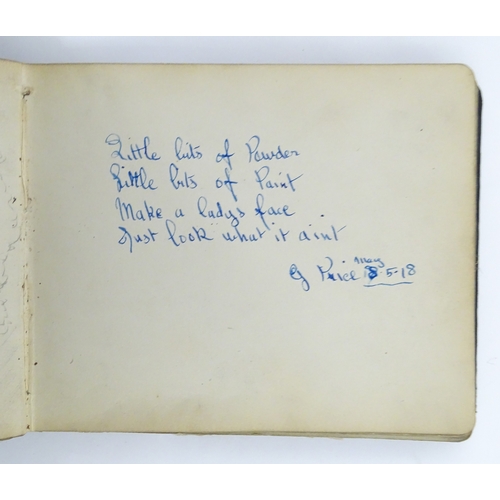 Little bits of Powder
Little bits of Paint
Make a ladys face
Just look what it aint
Price May 8-5-18